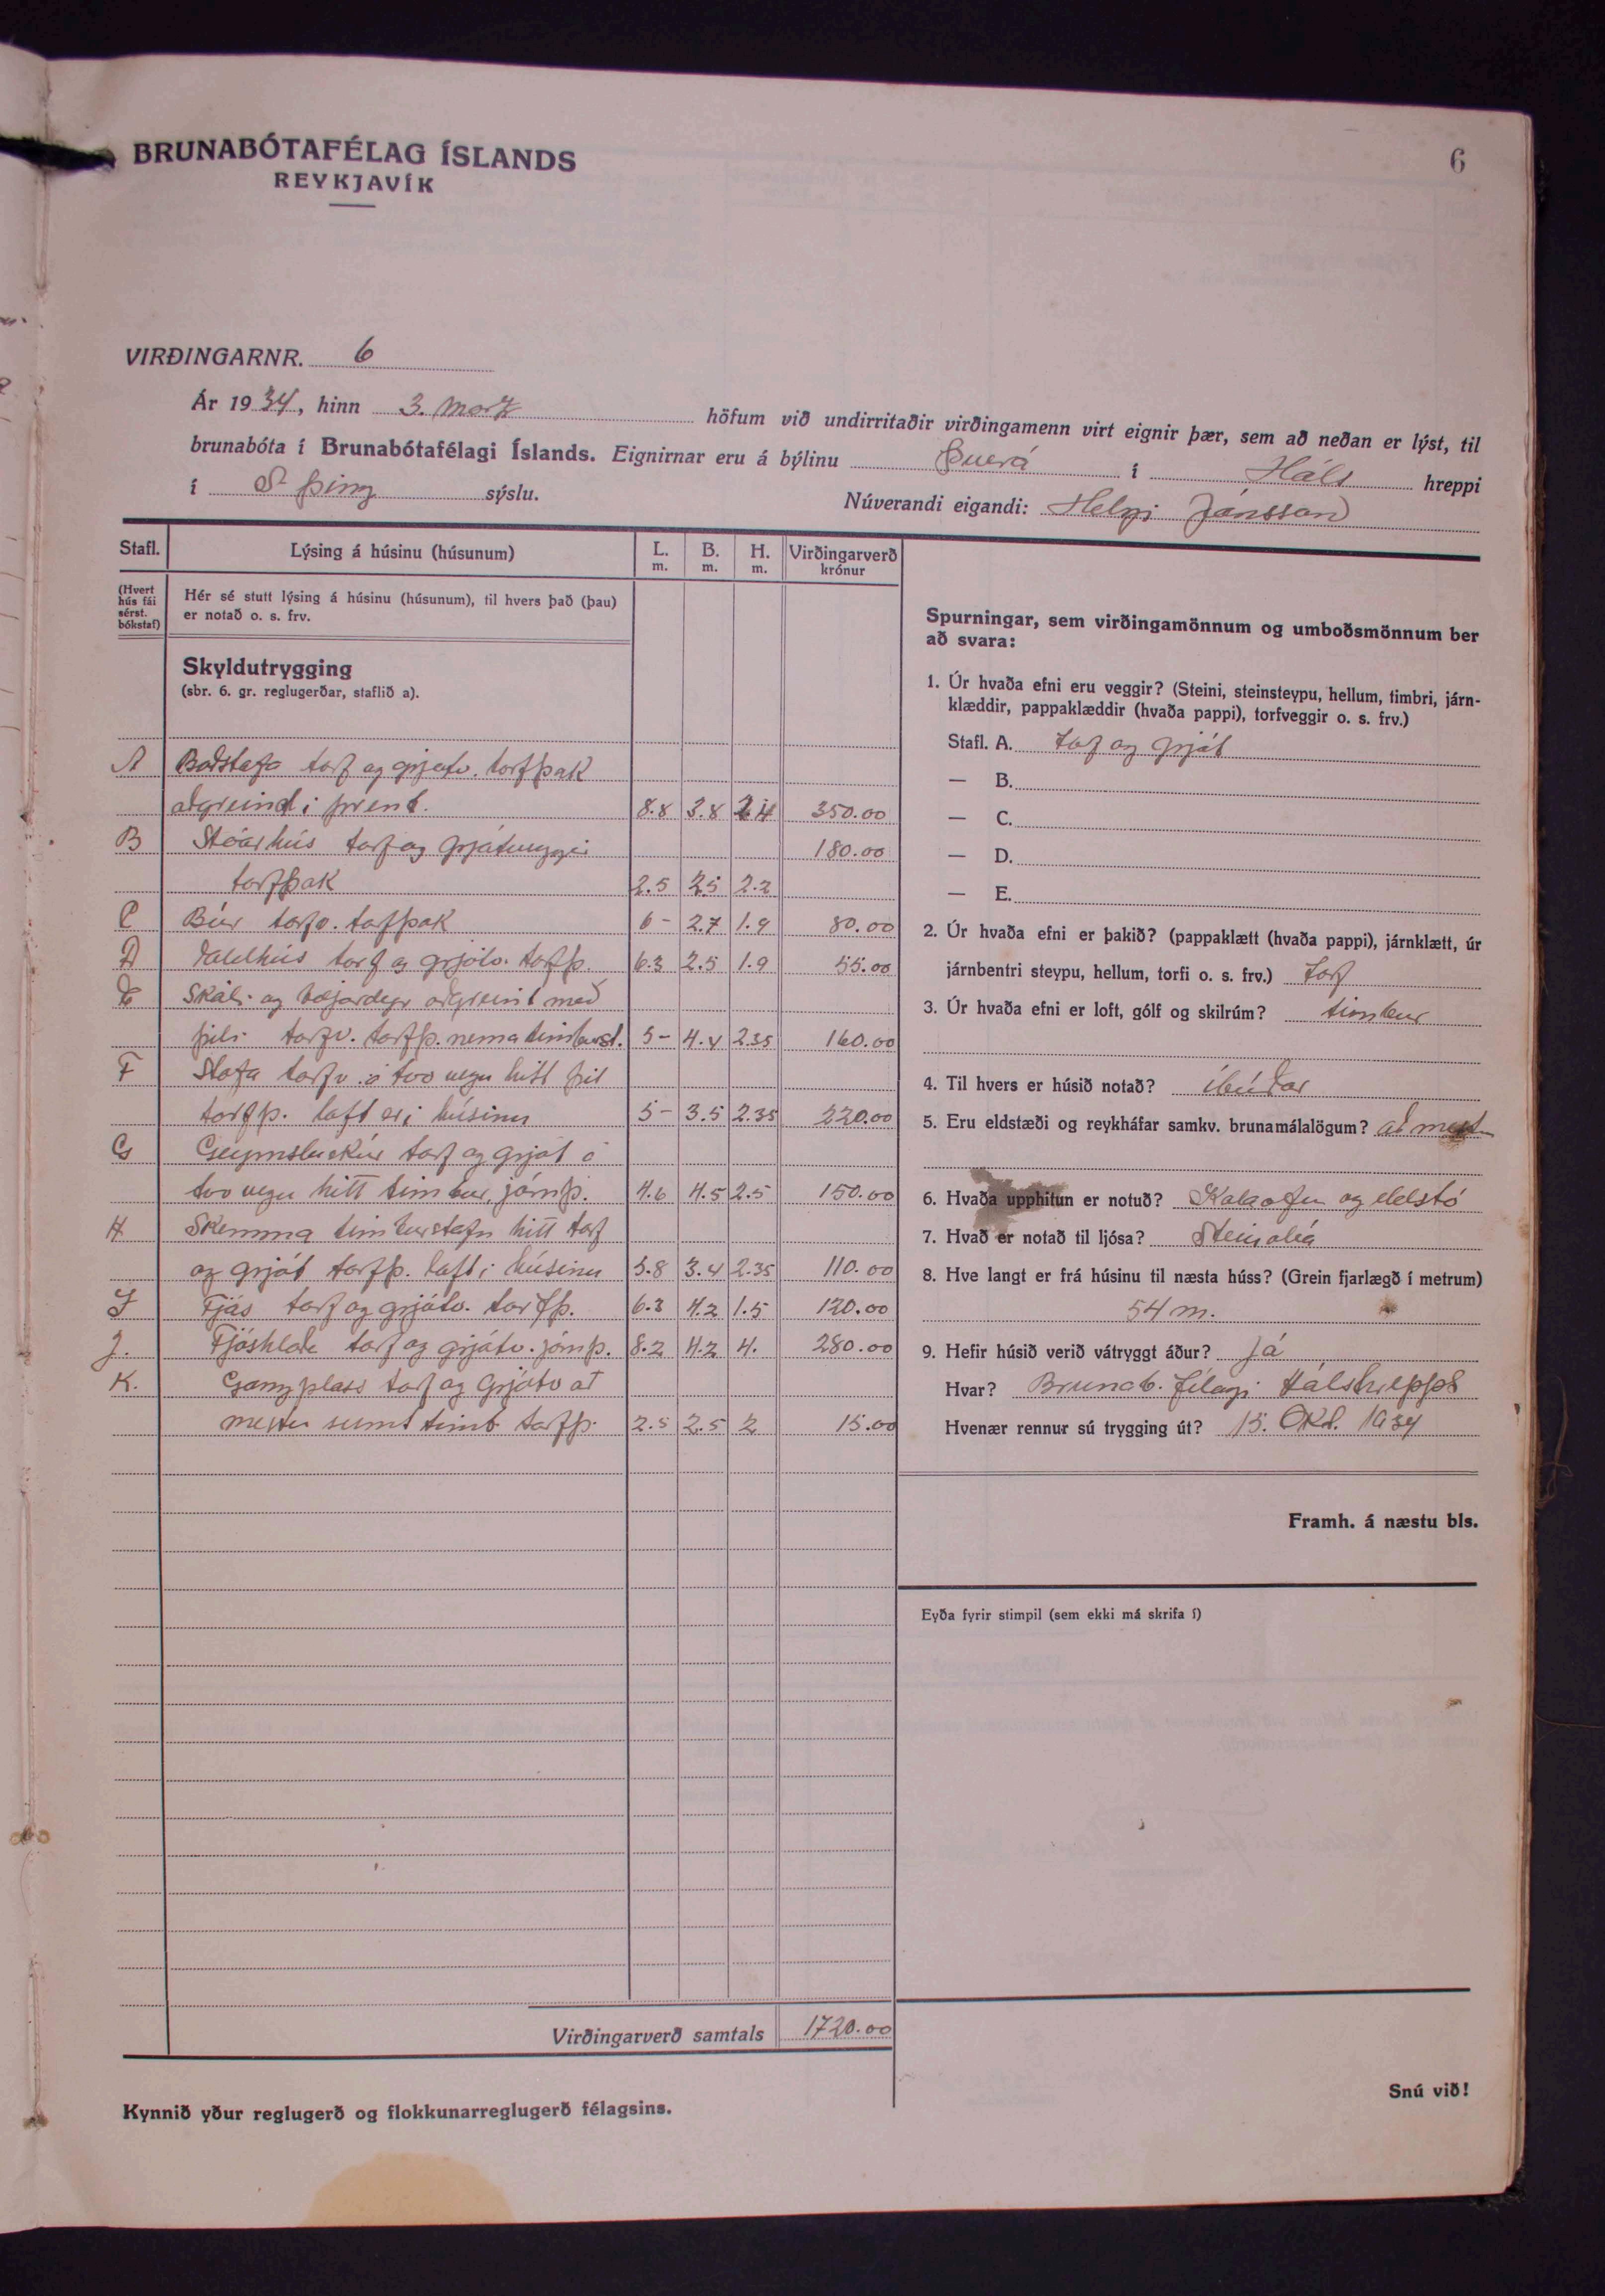 BRUNABÓTAFÉLAG ÍSLANDS
REYKJAVÍK
6
VIRÐINGARNR. 6
Ár 1934, hinn 3. Marz höfum við undirritaðir virðingamenn virt eignir þær, sem að neðan er lýst, til
brunabóta í Brunabótafélagi Íslands. Eignirnar eru á býlinu Þverá í Háls hreppi
í S-Þing sýslu. Núverandi eigandi: Helgi Jónsson
Stafl. Lýsing á húsinu (húsunum) L. m. B. m. H. m. Virðingarverð krónur
(Hvert hús fái sérst. bókstaf) Hér sé stutt lýsing á húsinu (húsunum), til hvers það (þau)
er notað o. s. frv.
Skyldutrygging
(sbr. 6. gr. reglugerðar, staflið a).
A Baðstofa torf og grjótv. torfþak
aðgreind í þrent. 8.8 3.8 350.00
B Stóarhús torf og grjótveggir 180.00
torfþak 2.5 2.5 2.2
C Búr torfv. tofþak 6- 2.7 1.9 80.00
D Eldhús torf og grjótv. torfþ. 6.3 2.5 1.9 55.00
E Skáli og bæjardyr aðgreint með
þili torfv. torfþ. nema timburst. 5- 4.4 2.35 160.00
F Stofa torfv. á tvo vegu hitt þil
torfþ. loft er í húsinu 5- 3.5 2.35 220.00
G Geymsluskúr torf og grjót á
tvo vegu hitt timbur, járnþ. 4.6 4.5 2.5 150.00
H Skemma timburstafn hitt torf
og grjót torfþ. loft í húsinu 5.8 3.4 2.35 110.00
I Fjós torf og grjótv. torfþ. 6.3 4.2 1.5 120.00
J. Fjóshlaða torf og grjótv. járnþ. 8.2 4.2 4. 280.00
K. Gangplass torf og grjótv að
mestu sumt timb torfþ. 2.5 2.5 2 15.00
Virðingarverð samtals 1720.00
Kynnið yður reglugerð og flokkunarreglugerð félagsins.
Spurningar, sem virðingamönnum og umboðsmönnum ber
að svara:
1. Úr hvaða efni eru veggir? (Steini, steinsteypu, hellum, timbri, járn-
klæddir, pappaklæddir (hvaða pappi), torfveggir o. s. frv.)
Stafl. A. torf og grjót
— B.
— C.
— D.
— E.
2. Úr hvaða efni er þakið? (pappaklætt (hvaða pappi), járnklætt, úr
járnbentri steypu, hellum, torfi o. s. frv.) torf
3. Úr hvaða efni er loft, gólf og skilrúm? timbur
4. Til hvers er húsið notað? íbúðar
5. Eru eldstæði og reykháfar samkv. brunamálalögum? að mestu
6. Hvaða upphitun er notuð? Kolaofn og eldstó
7. Hvað er notað til ljósa? Steinolía
8. Hve langt er frá húsinu til næsta húss? (Grein fjarlægð í metrum)
54 m.
9. Hefir húsið verið vátryggt áður? Já
Hvar? Brunab. félagi Hálshrepps
Hvenær rennur sú trygging út? 15. Okt. 1934
Framh. á næstu bls.
Eyða fyrir stimpil (sem ekki má skrifa í)
Snú við!